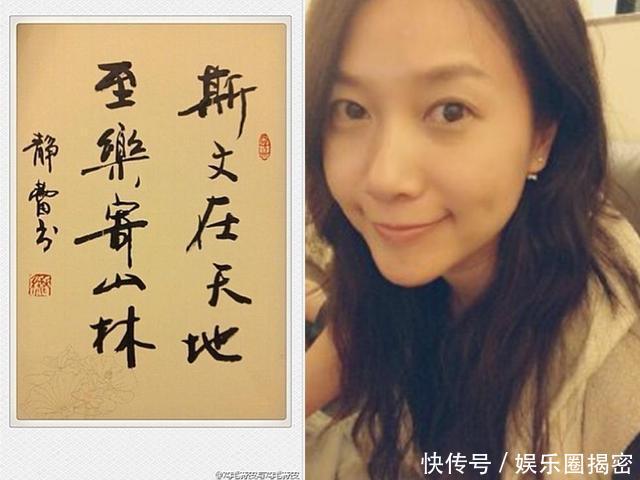 斯文在天地
至樂寄山林
静蕾书
快传号 / 娱乐圈揭密